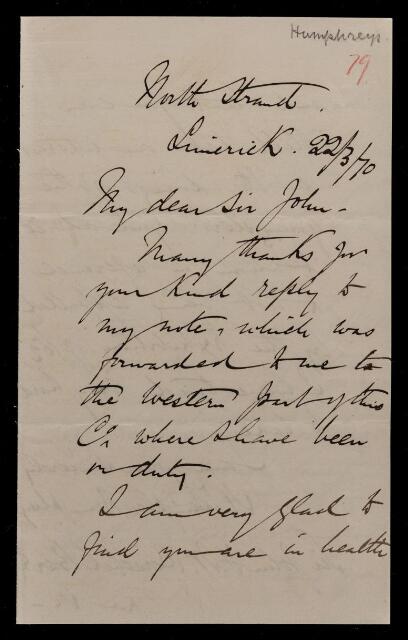 Humphreys.
79
North Strand.
Limerick. 22/3/70
My dear Sir John -
Many thanks for
your kind reply to
my note, which was
forwarded to me to
the Western part of this
Co. where I have been
on duty.
I am very glad to
find you are in health